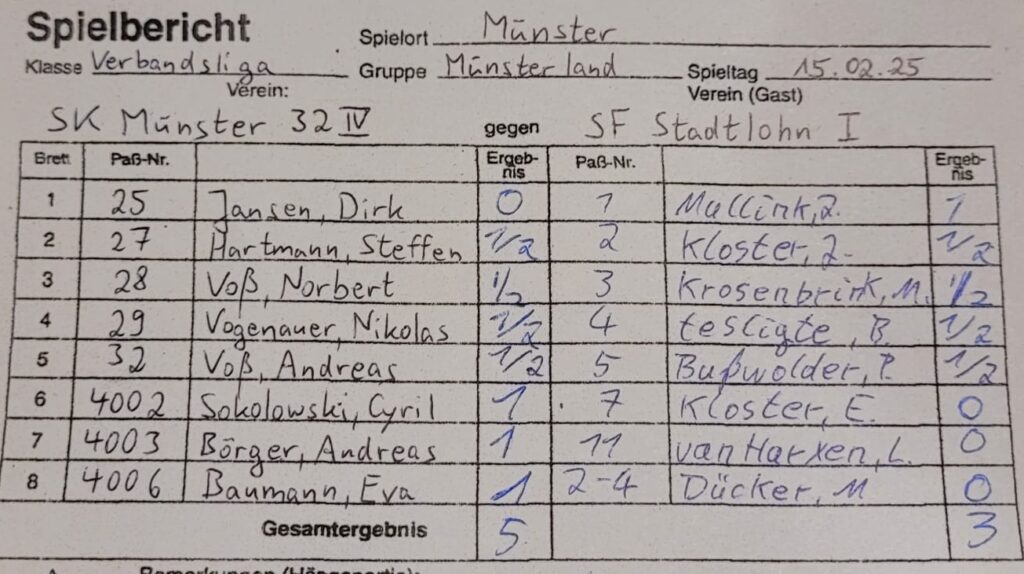 Spielbericht Spielort Münster
Klasse Verbandsliga Gruppe Münsterland Spieltag 15.02.25
Verein: Verein (Gast)
SK Münster 32 IV gegen SF Stadtlohn I
Brett Paß-Nr. Ergeb-nis Paß-Nr. Ergeb-nis
1 25 Jansen, Dirk 0 1 Mullink, J. 1
2 27 Hartmann, Steffen 1/2 2 Kloster, J. 1/2
3 28 Voß, Norbert 1/2 3 Krosenbrink, M. 1/2
4 29 Vogenauer, Nikolas 1/2 4 tesligte, B. 1/2
5 32 Voß, Andreas 1/2 5 Bußwolder, P. 1/2
6 4002 Sokolowski, Cyril 1 7 Kloster, E. 0
7 4003 Börger, Andreas 1 11 van Harxen, L. 0
8 4006 Baumann, Eva 1 2-4 Dücker, M 0
Gesamtergebnis 5 3
Bemerkungen (Hängepartie):